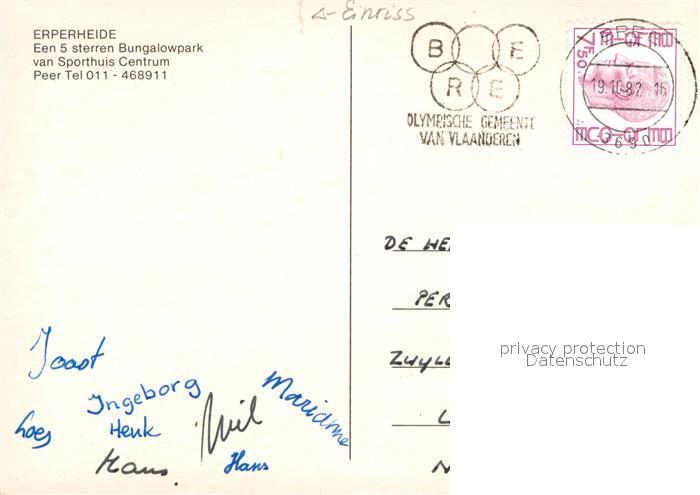 ERPERHEIDE
Een 5 sterren Bungalowpark
van Sporthuis Centrum
Peer Tel 011 - 468911
Einriss
B E
R E
OLYMPISCHE GEMEENTE
VAN VLAANDEREN
7F50
19.10.82 16
DE WE
PER
ZUYL
L
privacy protection
Datenschutz
Joost
Ingeborg
Marianne
Loes
Henk
Wil
Hans
Hans